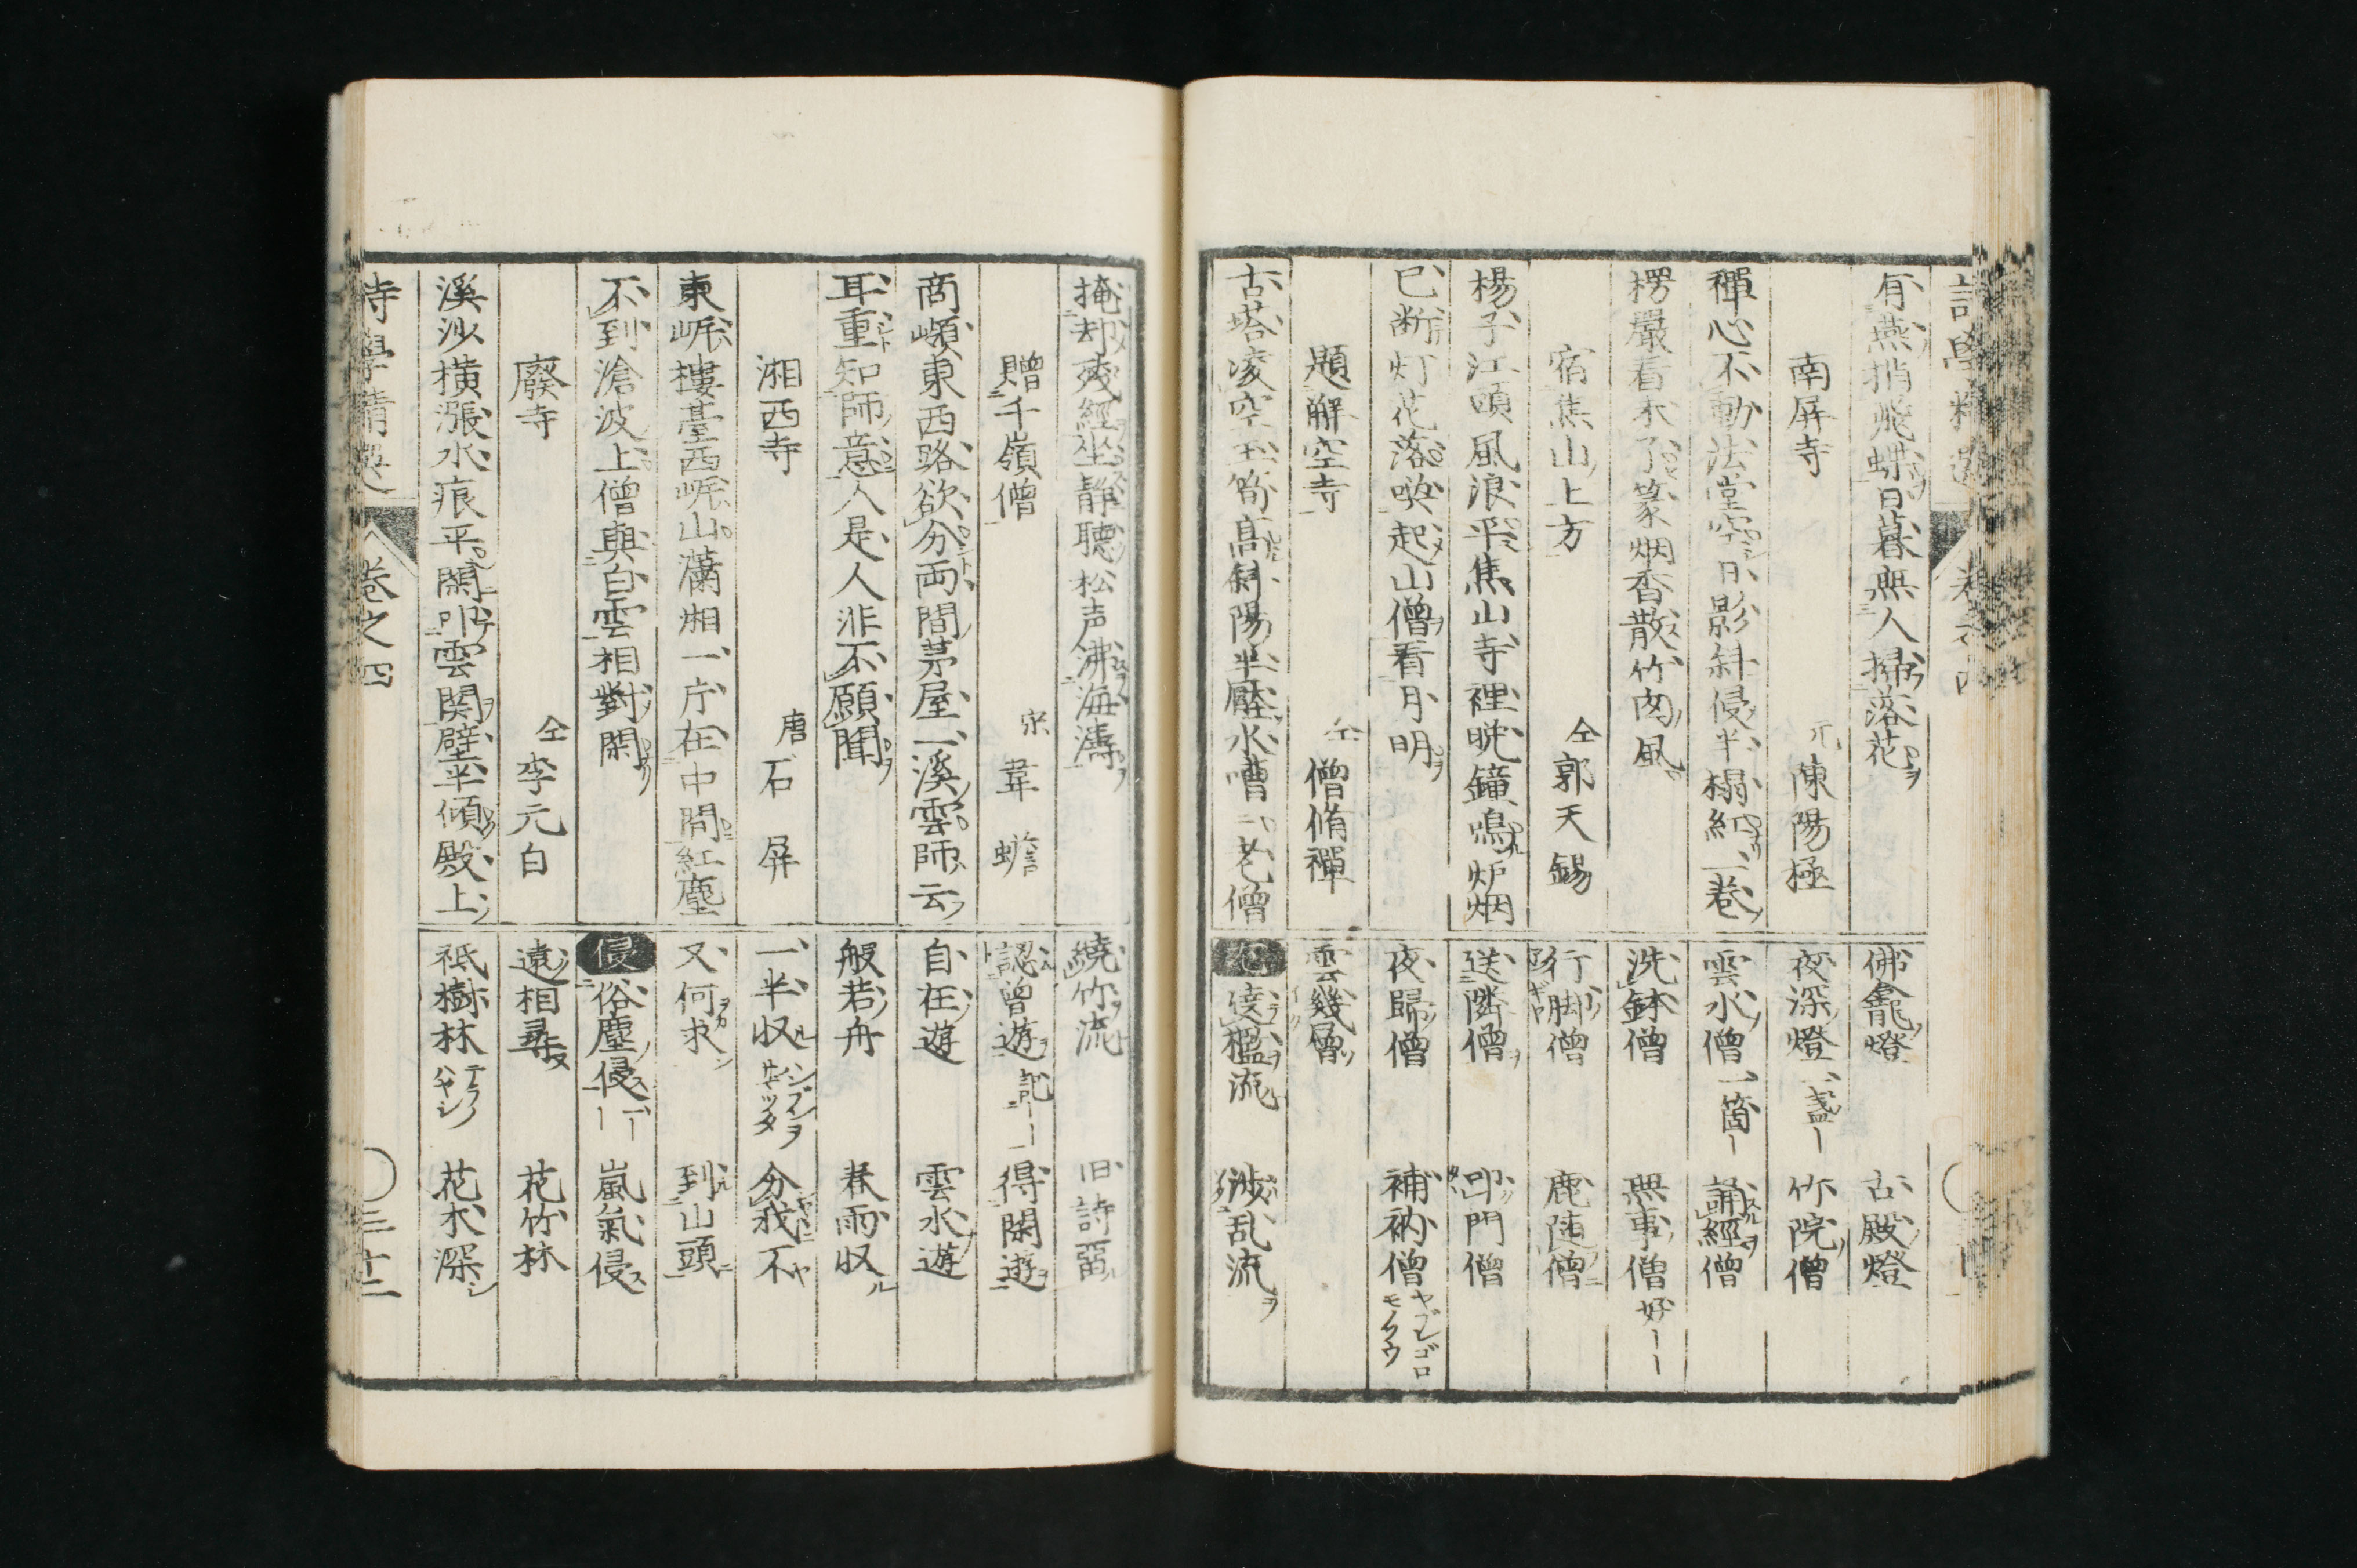 有燕捎飛蝶日暮無人掃落花
南屏寺 元 陳陽極
禪心不動法堂空日影斜侵半榻紅一巻
楞嚴看未了篆烟香散竹内風
宿焦山上方 仝 郭天錫
楊子江頭風浪平焦山寺裡晩鐘鳴炉烟
已断灯花落喚起山僧看月明
題解空寺 仝 僧脩禪
古塔凌空玉筍高斜陽半壓水嘈〻老僧
佛龕燈 古殿燈
夜深燈一盞｜ 竹院僧
雲水僧一箇｜ 誦經僧
洗鉢僧 無事僧好｜｜
行脚僧 鹿随僧
送隣僧 叩門僧
夜歸僧 補衲僧ヤブレゴロモノクウ
雲幾層
尤 遶檻流 渉乱流
掩却残經坐静聽松声沸海濤
贈千嶺僧 宋 韋蟾
商嶺東西路欲分両間茅屋一溪雲師云
耳重知師意人是人非不願聞
湘西寺 唐 石屏
東岻樓臺西岻山瀟湘一片在中間紅塵
不到滄波上僧與白雲相對閑
廢寺 仝 李元白
溪沙横漲水痕平閑叩雲関壁半傾殿上
繞竹流 旧詩畱
認曾遊記｜ 得閑遊
自在遊 雲水遊
般若舟 春雨収
一半収ハンブンヲサマツタ 分我不
又何求 到山頭
侵 俗塵侵｜ 嵐氣侵
遠相尋 花竹林
祇樹林テラノハヤシ 花木深
詩學精選 巻之四 〇三十二